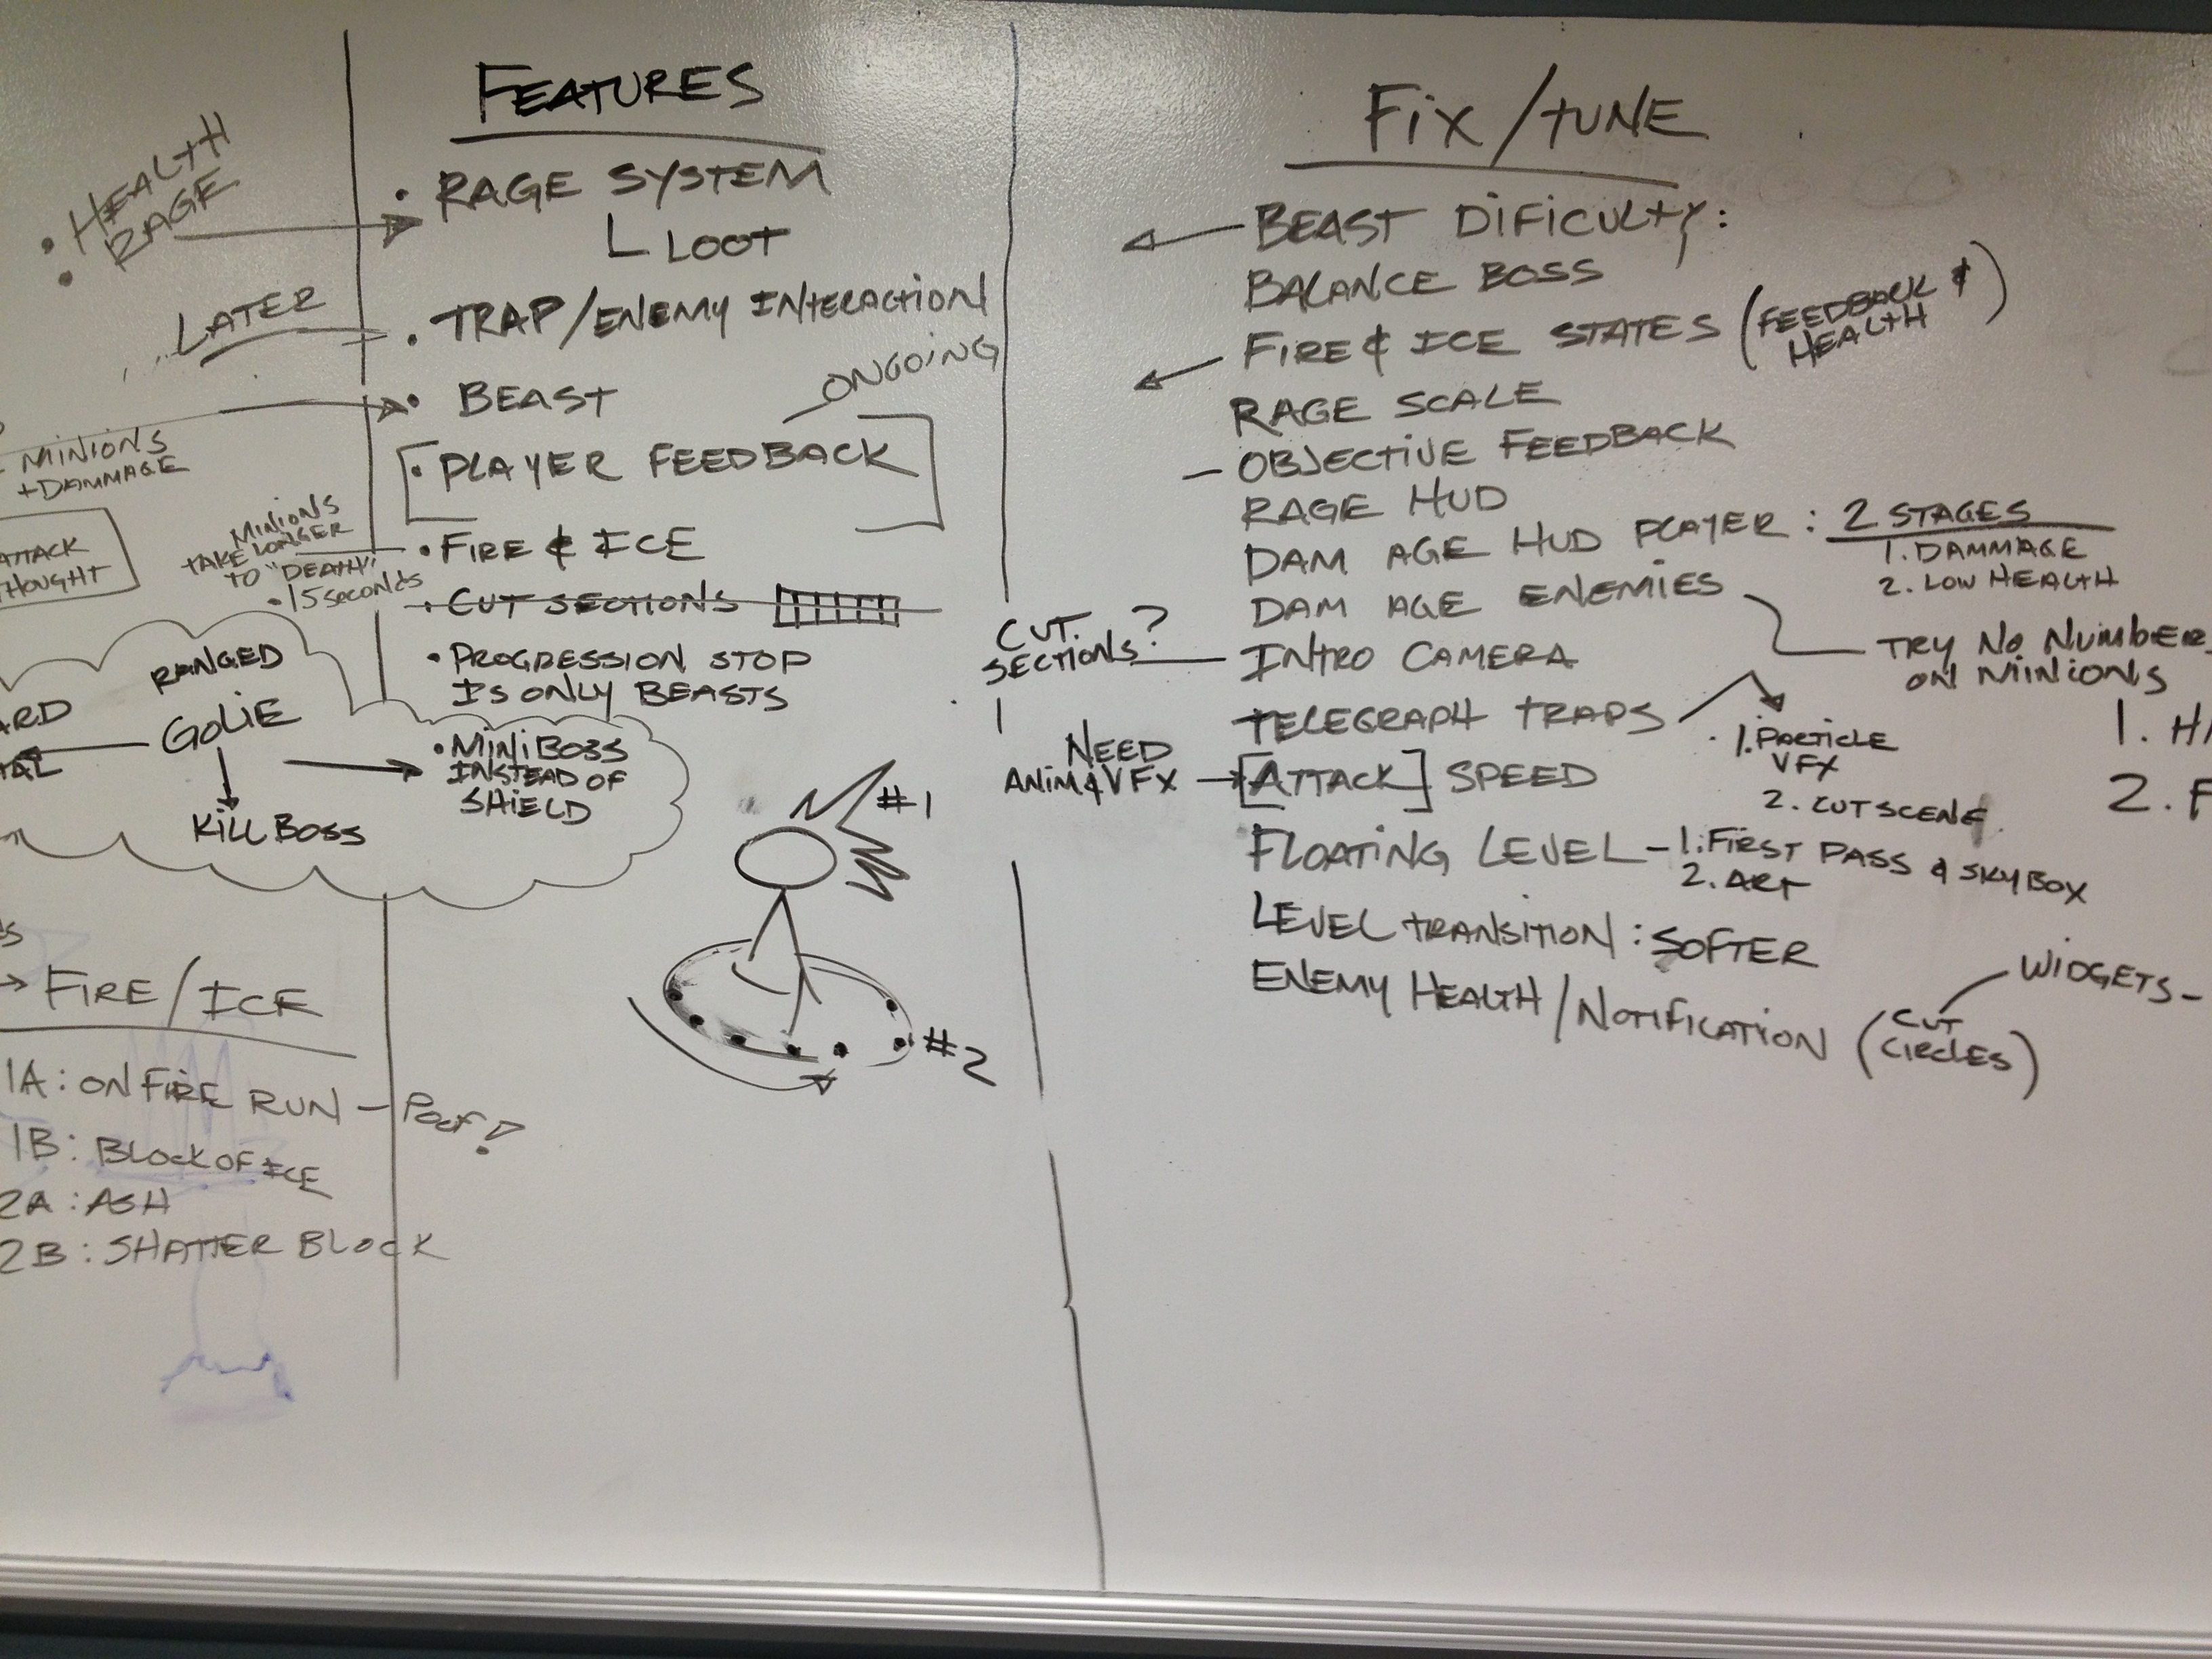 • HEALTH
• RAGE
LATER
MINIONS
+DAMMAGE
ATTACK
MINIONS
TAKE LONGER
TO "DEATH"
• 15 SECONDS
RANGED
GOLIE
KILL BOSS
• MINIBOSS
INSTEAD OF
SHIELD
FIRE/ICE
1A: ON FIRE RUN – POOF!
1B: BLOCK OF ICE
2A: ASH
2B: SHATTER BLOCK
FEATURES
• RAGE SYSTEM
LOOT
• TRAP/ENEMY INTERACTION
• BEAST
ONGOING
[• PLAYER FEEDBACK]
• FIRE & ICE
• CUT SECTIONS
• PROGRESSION STOP
IS ONLY BEASTS
#1
#2
FIX/TUNE
BEAST DIFICULTY:
BALANCE BOSS
FIRE & ICE STATES (FEEDBACK &
HEALTH)
RAGE SCALE
– OBJECTIVE FEEDBACK
RAGE HUD
DAM AGE HUD PLAYER: 2 STAGES
1. DAMMAGE
2. LOW HEALTH
DAM AGE ENEMIES
TRY NO NUMBER
ON MINIONS
CUT
SECTIONS?
INTRO CAMERA
TELEGRAPH TRAPS
1. PARTICLE
VFX
2. CUTSCENE
NEED
ANIM & VFX
[ATTACK] SPEED
FLOATING LEVEL – 1. FIRST PASS & SKYBOX
2. ART
LEVEL TRANSITION: SOFTER
ENEMY HEALTH/NOTIFICATION (CUT
CIRCLES)
WIDGETS –
1.
2.